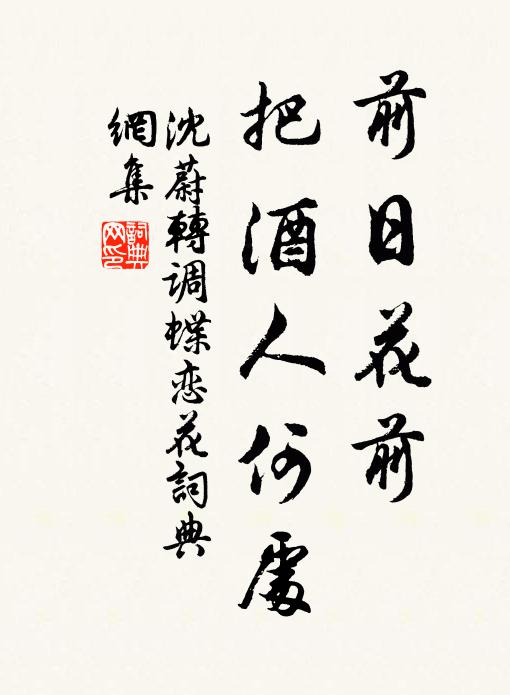 前日花前
把酒人何處
沈蔚轉调蝶恋花詞典
網集
詞典
网印